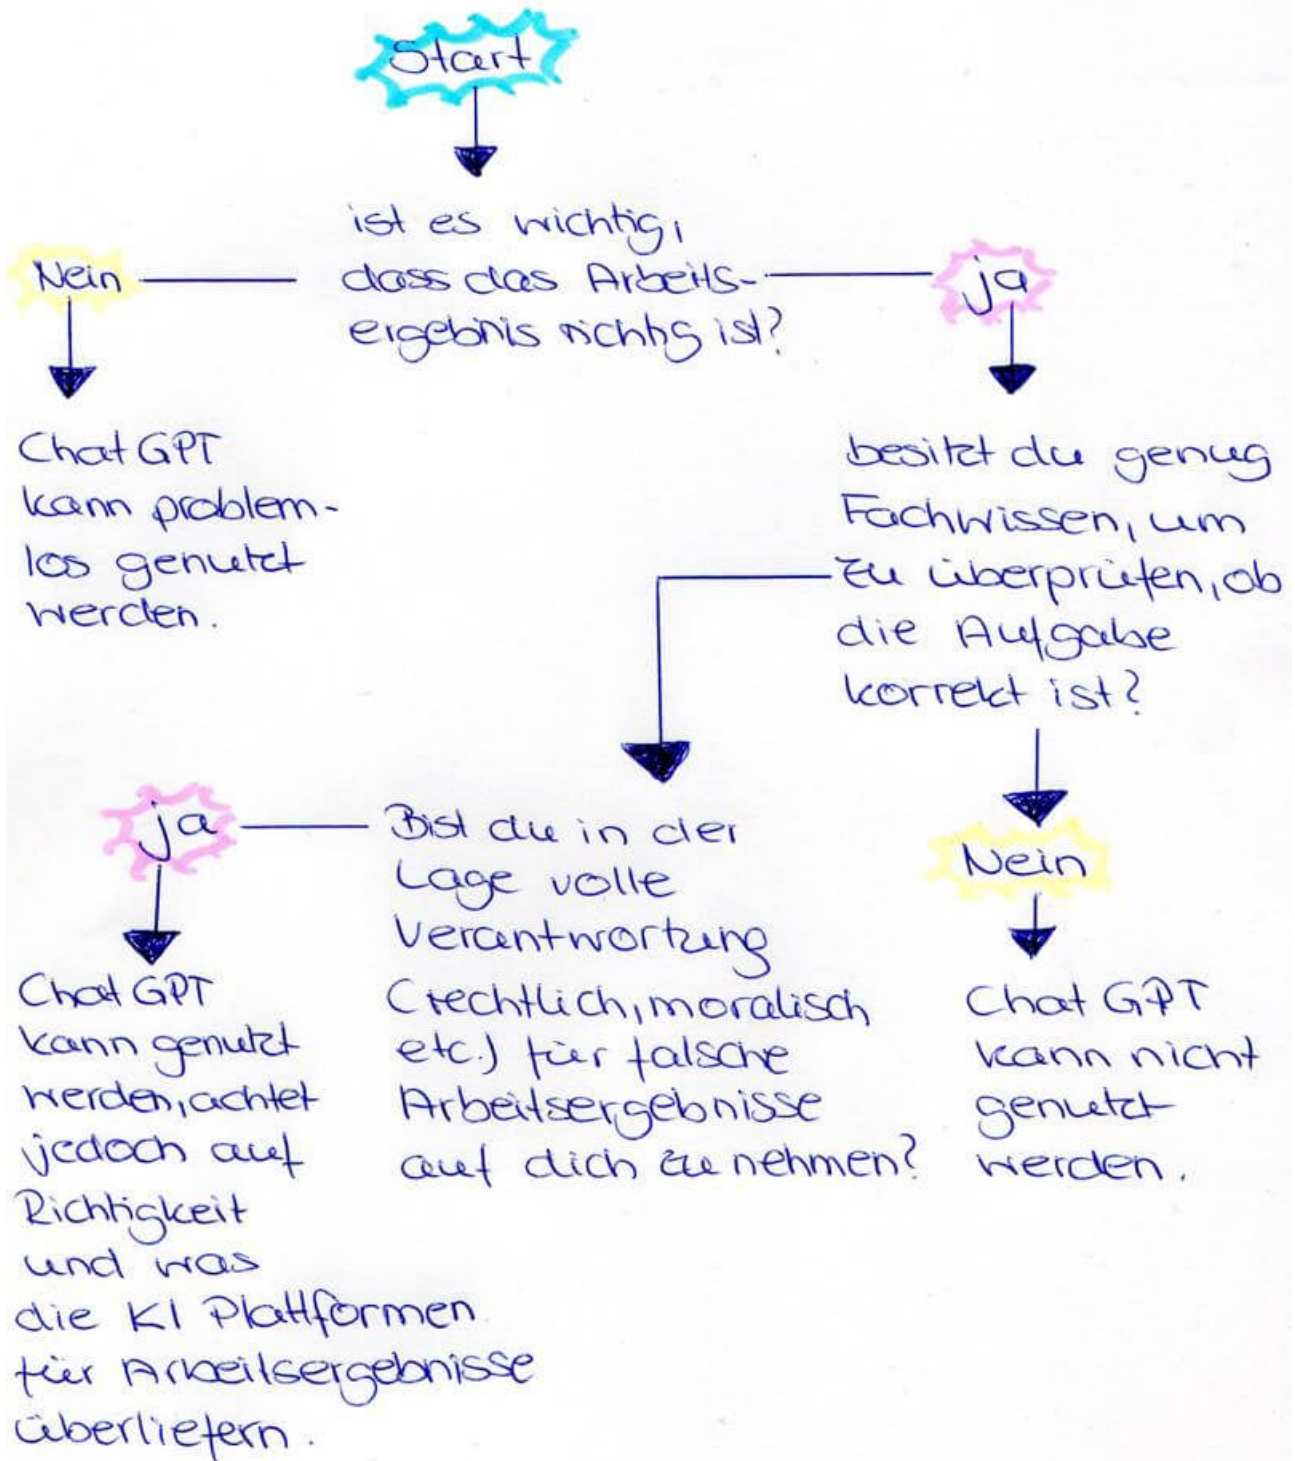 Start
ist es wichtig,
dass das Arbeits-
ergebnis richtig ist?
Nein
ja
Chat GPT
kann problem-
los genutzt
werden.
besitzt du genug
Fachwissen, um
zu überprüfen, ob
die Aufgabe
korrekt ist?
ja
Bist du in der
Lage volle
Verantwortung
(rechtlich, moralisch
etc.) für falsche
Arbeitsergebnisse
auf dich zu nehmen?
Nein
Chat GPT
kann genutzt
werden, achtet
jedoch auf
Richtigkeit
und was
die KI Plattformen
für Arbeitsergebnisse
überliefern.
Chat GPT
kann nicht
genutzt
werden.